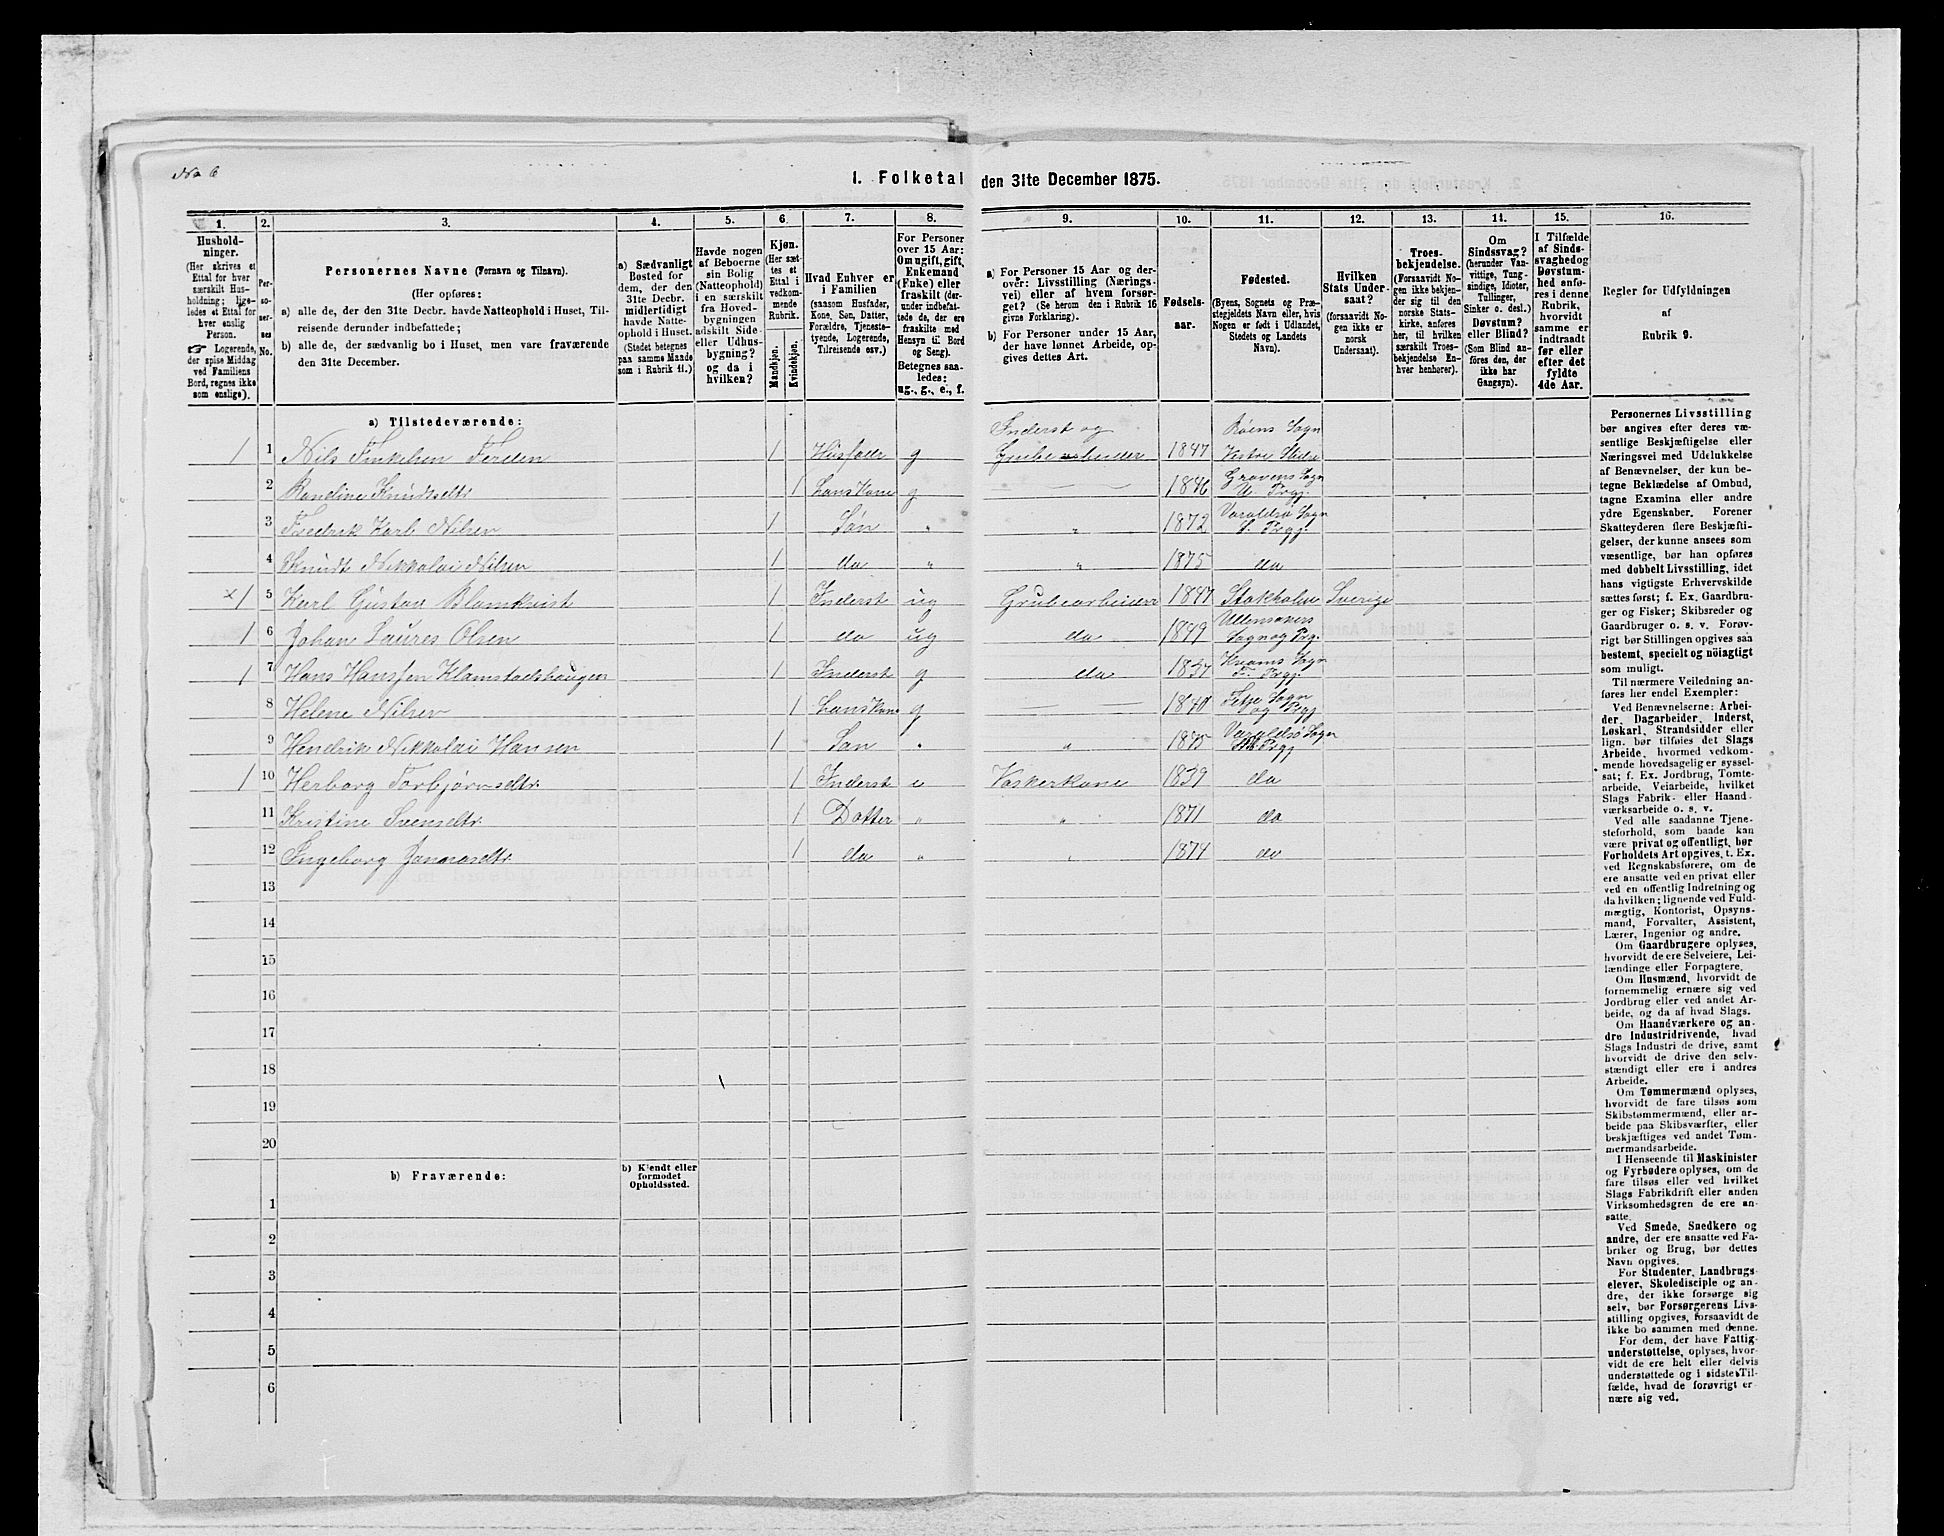 No 6
1. Folketal den 31te December 1875.
1. 2. 3. 4. 5. 6. 7. 8. 9. 10. 11. 12. 13. 14. 15. 16.
Hushold-
ninger.
(Her skrives et
Ettal for hver
særskilt Hus-
holdning; lige-
ledes et Ettal for
hver enslig
Person.
☞ Logerende,
der spise Middag
ved Familiens
Bord, regnes ikke
som enslige).
Per-
so-
ner-
nes
No.
Personernes Navne (Fornavn og Tilnavn).
(Her opføres:
a) alle de, der den 31te Decbr. havde Natteophold i Huset, Til-
reisende derunder indbefattede;
b) alle de, der sædvanlig bo i Huset, men vare fraværende
den 31te December.
a) Sædvanligt
Bosted for
dem, der den
31te Decbr.
midlertidigt
havde Natte-
ophold i Huset.
(Stedet betegnes
paa samme Maade
som i Rubrik 11.)
Havde nogen
af Beboerne
sin Bolig
(Natteophold)
i en særskilt
fra Hoved-
bygningen
adskilt Side-
eller Udhus-
bygning?
og da i
hvilken?
Kjøn.
(Her sæt-
tes et
Ettal i
vedkom-
mende
Rubrik.
Mandkjøn.
Kvindekjøn.
Hvad Enhver er
i Familien
(saasom Husfader,
Kone, Søn, Datter,
Forældre, Tjeneste-
tyende, Logerende,
Tilreisende osv.)
For Personer
over 15 Aar:
Om ugift, gift,
Enkemand
(Enke) eller
fraskilt (der-
under indbefat-
tede de, der ere
fraskilte med
Hensyn til Bord
og Seng).
Betegnes saa-
ledes:
ug., g., e., f.
a) For Personer 15 Aar og der-
over: Livsstilling (Nærings-
vei) eller af hvem forsør-
get? (Se herom den i Rubrik 16
givne Forklaring).
b) For Personer under 15 Aar,
der have lønnet Arbeide, op-
gives dettes Art.
Fødsels-
aar.
Fødested.
(Byens, Sognets og Præ-
stegjeldets Navn eller, hvis
Nogen er født i Udlandet,
Stedets og Landets
Navn).
Hvilken
Stats Under-
saat?
(forsaavidt No-
gen ikke er
norsk
Undersaat).
Troes-
bekjendelse.
(Forsaavidt No-
gen ikke bekjen-
der sig til den
norske Stats-
kirke, anføres
her, til hvilken
særskilt Troes-
bekjendelse En-
hver henhører).
Om
Sindssvag?
(herunder Van-
vittige, Tung-
sindige, Idioter,
Tullinger,
Sinker o. desl.)
Døvstum?
eller Blind?
(Som Blind an-
føres den, der
ikke har
Gangsyn).
I Tilfælde
af Sinds-
svaghed og
Døvstum-
hed anfø-
res i denne
Rubrik,
hvorvidt
samme er
indtraadt
før eller
efter det
fyldte
4de Aar.
Regler for Udfyldningen
af
Rubrik 9.
a) Tilstedeværende:
1 1 Nils Finkelsen Ferden 1 Husfader g Inderst og Grubearbeider 1847 Røens Sogn Vestre Slidre
2 Raneline Knudtsdtr 1 Hans Kone g 1846 Gravens Sogn U. Prgj.
3 Fredrik Karl Nilsen 1 Søn " " 1872 Varaldsø Sogn S. Prgj.
4 Knudt Nikkolai Nilsen 1 do " " 1875 do
x 1 5 Karl Gustav Blomkvist 1 Inderst ug Grubearbeider 1847 Stokholm Sverige
1 6 Johan Laures Olsen 1 do ug do 1849 Ullensakers Sogn og Prg.
1 7 Hans Hanssen Klamstadshaugen 1 Inderst g do 1837 Kvams Sogn F. Prgj.
8 Helene Nilsen 1 Hans Kone g 1840 Sogn og Prgj
9 Hendrik Nikkolai Hansen 1 Søn " " 1875 Varaldsø Sogn Prgj
1 10 Herborg Torbjørnsdtr 1 Inderst e Vaskerkone 1839 do
11 Kristine Svensdtr 1 Datter " " 1871 do
12 Ingeborg 1 do " " 1874 do
13
14
15
16
17
18
19
20
b) Fraværende:
b) Kjendt eller
formodet
Opholdssted.
1
2
3
4
5
6
Personernes Livsstilling
bør angives efter deres væ-
sentlige Beskjæftigelse eller
Næringsvei med Udelukkelse
af Benævnelser, der kun be-
tegne Beklædelse af Ombud,
tagne Examina eller andre
ydre Egenskaber. Forener
Skatteyderen flere Beskjæfti-
gelser, der kunne ansees som
væsentlige, bør han opføres
med dobbelt Livsstilling, idet
hans vigtigste Erhvervskilde
sættes først; f. Ex. Gaardbru-
ger og Fisker; Skibsreder og
Gaardbruger o. s. v. Forøv-
rigt bør Stillingen opgives saa
bestemt, specielt og nöiagtigt
som muligt.
Til nærmere Veiledning an-
føres her endel Exempler:
Ved Benævnelserne: Arbei-
der, Dagarbeider, Inderst,
Løskarl, Strandsidder eller
lign. bør tilføies det Slags
Arbeide, hvormed vedkom-
mende hovedsagelig er syssel-
sat; f. Ex. Jordbrug, Tomte-
arbeide, Veiarbeide, hvilket
Slags Fabrik- eller Haand-
værksarbeide o. s. v.
Ved alle saadanne Tjene-
steforhold, som baade kan
være privat og offentligt, bør
Forholdets Art opgives, t. Ex.
ved Regnskabsførere, om de
ere ansatte ved en privat eller
ved en offentlig Indretning og
da hvilken; lignende ved Fuld-
mægtig, Kontorist, Opsyns-
mand, Forvalter, Assistent,
Lærer, Ingeniør og andre.
Om Gaardbrugere oplyses,
hvorvidt de ere Selveiere, Lei-
lændinge eller Forpagtere.
Om Husmænd, hvorvidt de
fornemmelig ernære sig ved
Jordbrug eller ved andet Ar-
beide, og da af hvad Slags.
Om Haandværkere og an-
dre Industridrivende, hvad
Slags Industri de drive, samt
hvorvidt de drive den selv-
stændigt eller ere i andres
Arbeide.
Om Tømmermænd oplyses,
hvorvidt de fare tilsøs som
Skibstømmermænd, eller ar-
beide paa Skibsværfter, eller
beskjæftiges ved andet Tøm-
mermandsarbeide.
I Henseende til Maskinister
og Fyrbødere oplyses, om de
fare tilsøs eller ved hvilket
Slags Fabrikdrift eller anden
Virksomhedsgren de ere an-
satte.
Ved Smede, Snedkere og
andre, der ere ansatte ved Fa-
briker og Brug, bør dettes
Navn opgives.
For Studenter, Landbrugs-
elever, Skoledisciple og an-
dre, der ikke forsørge sig
selv, bør Forsørgerens Livs-
stilling opgives, forsaavidt de
ikke bo sammen med denne.
For dem, der have Fattig-
understøttelse, oplyses, hvor-
vidt de ere helt eller delvis
understøttede og i sidste Til-
fælde, hvad de forøvrigt er-
nære sig ved.